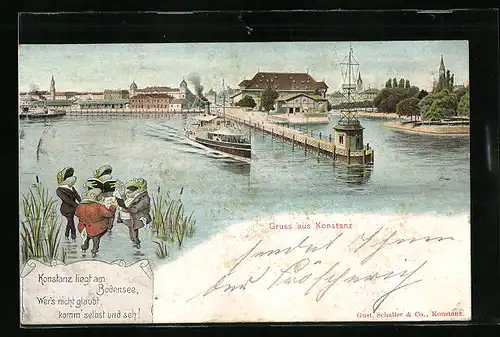 Gruss aus Konstanz
sendet Ihnen
der
Konstanz liegt am
Bodensee,
Wer's nicht glaubt,
komm' selbst und seh!
Gust. Schaller & Co., Konstanz.